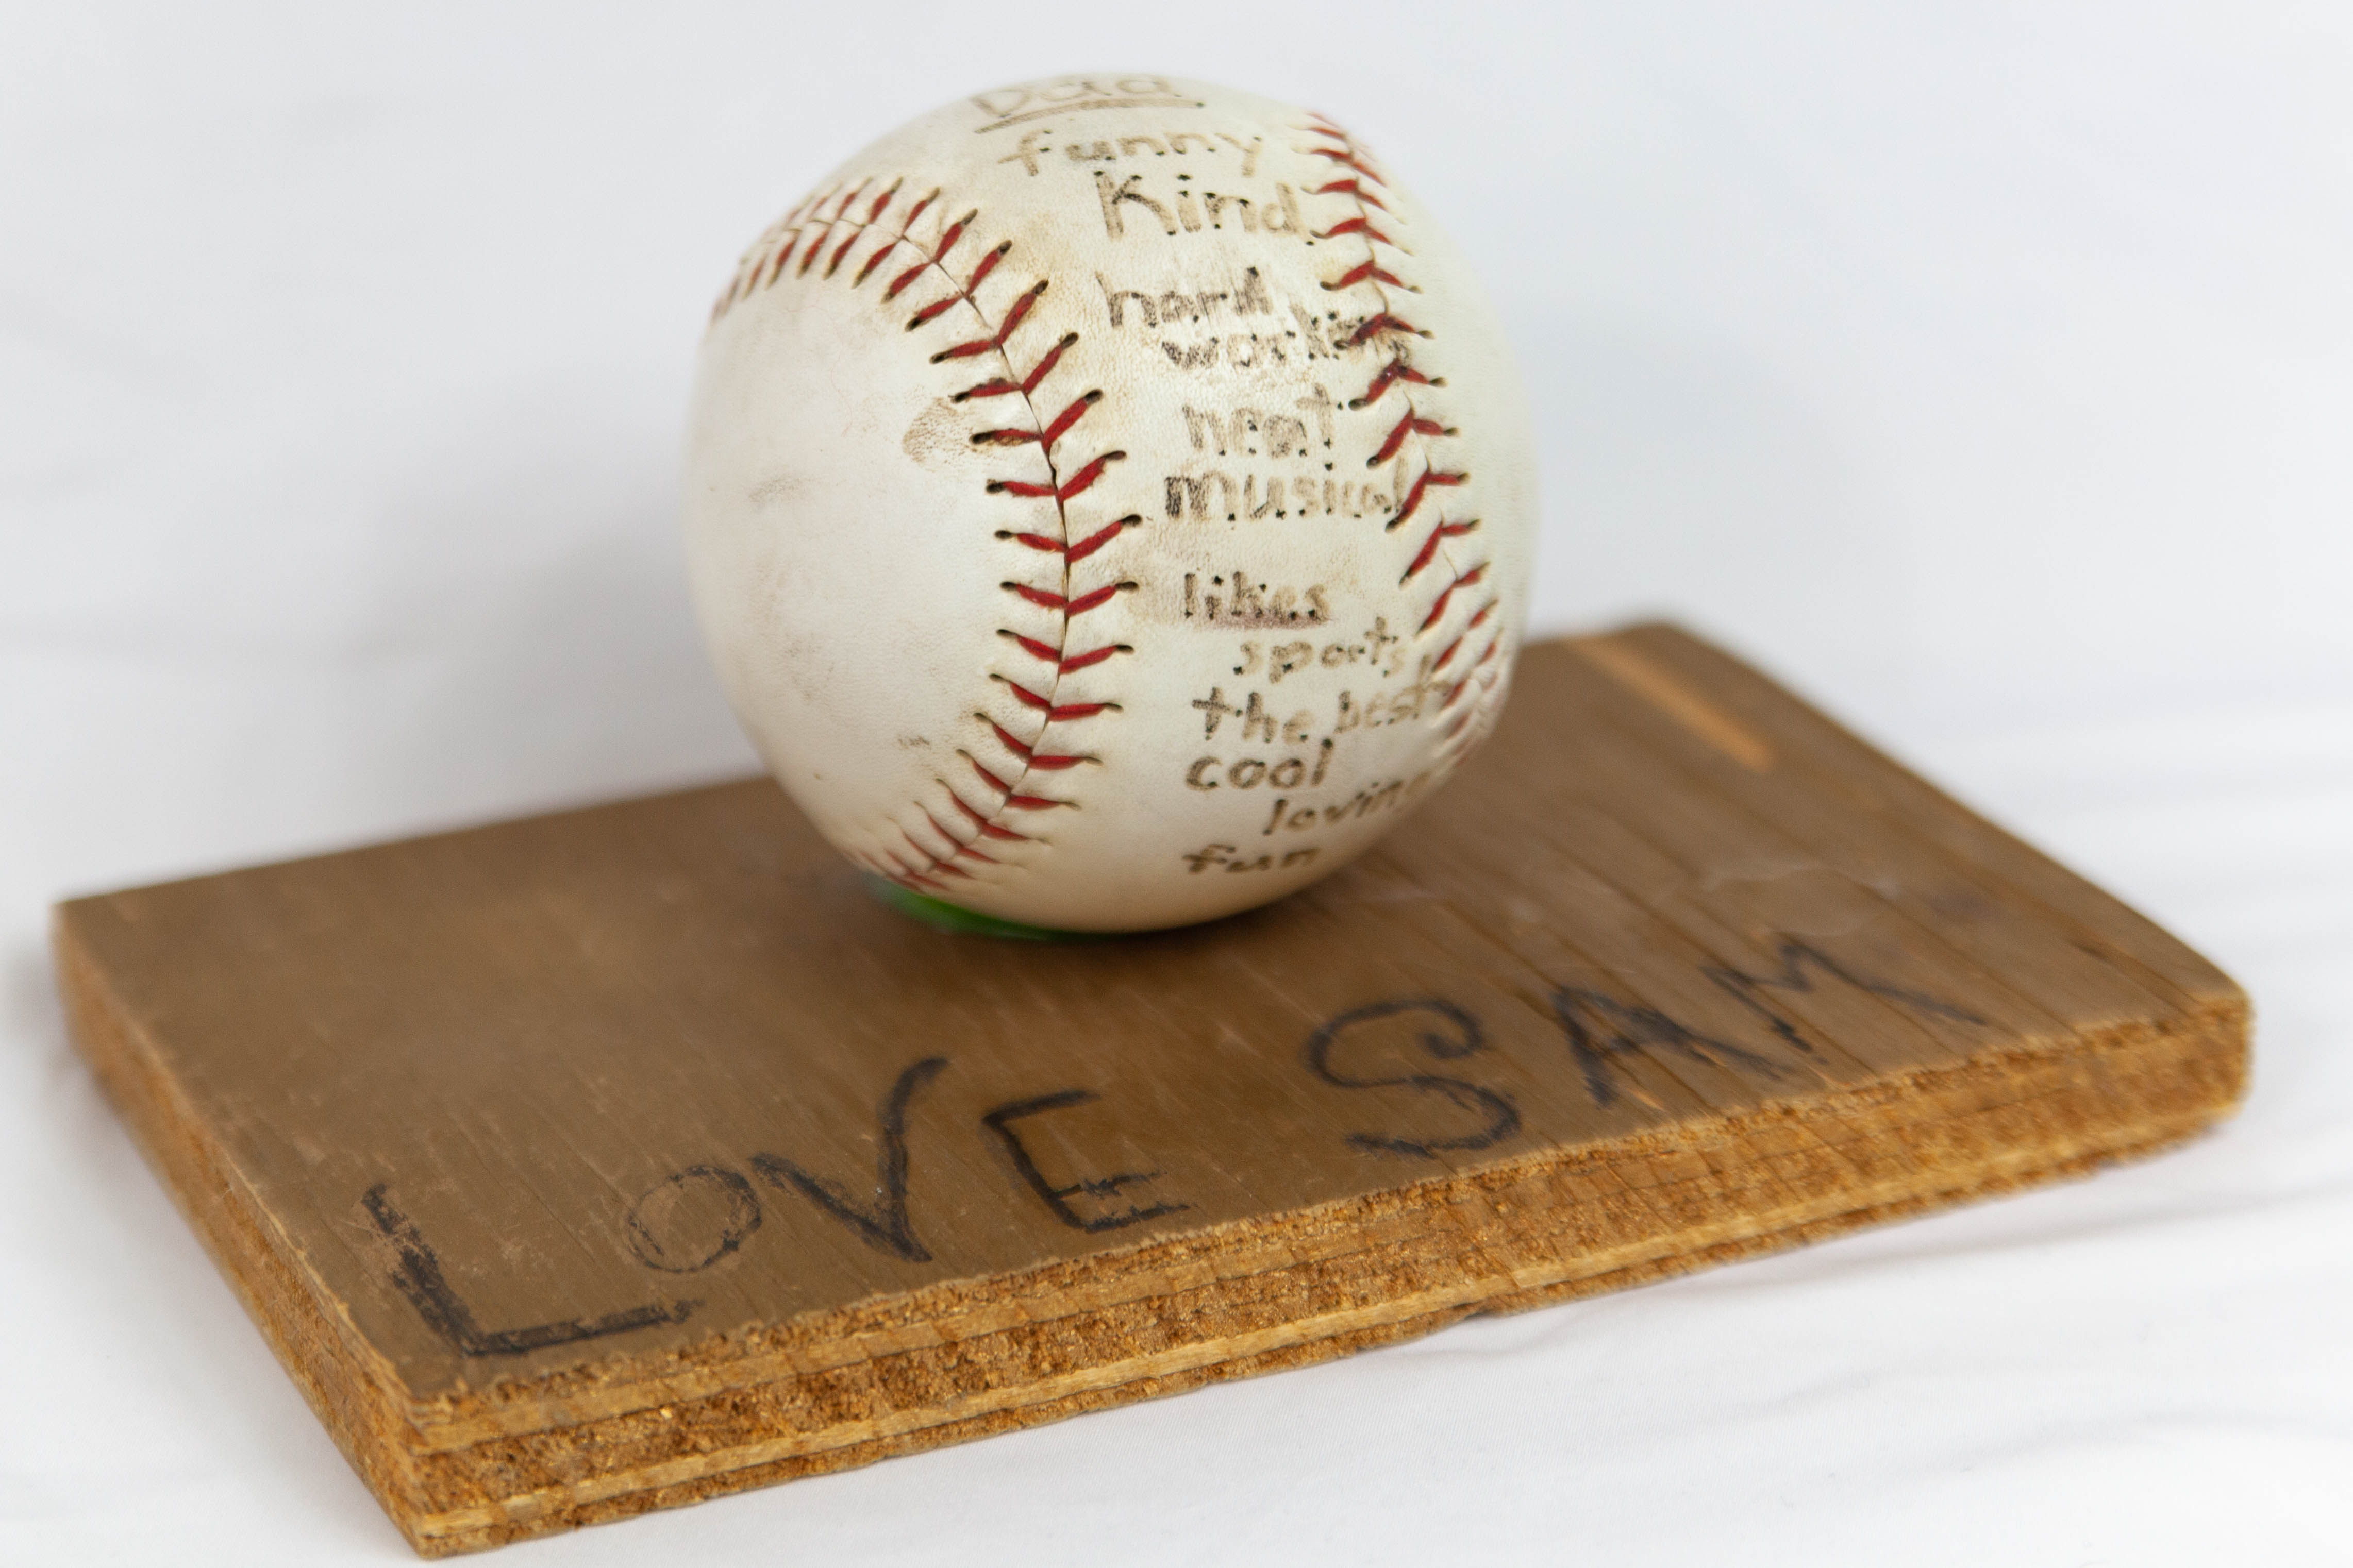 Dad
funny
Kind
hard
working
neat
musical
likes
sports
the best
cool
loving
fun
LOVE SAM